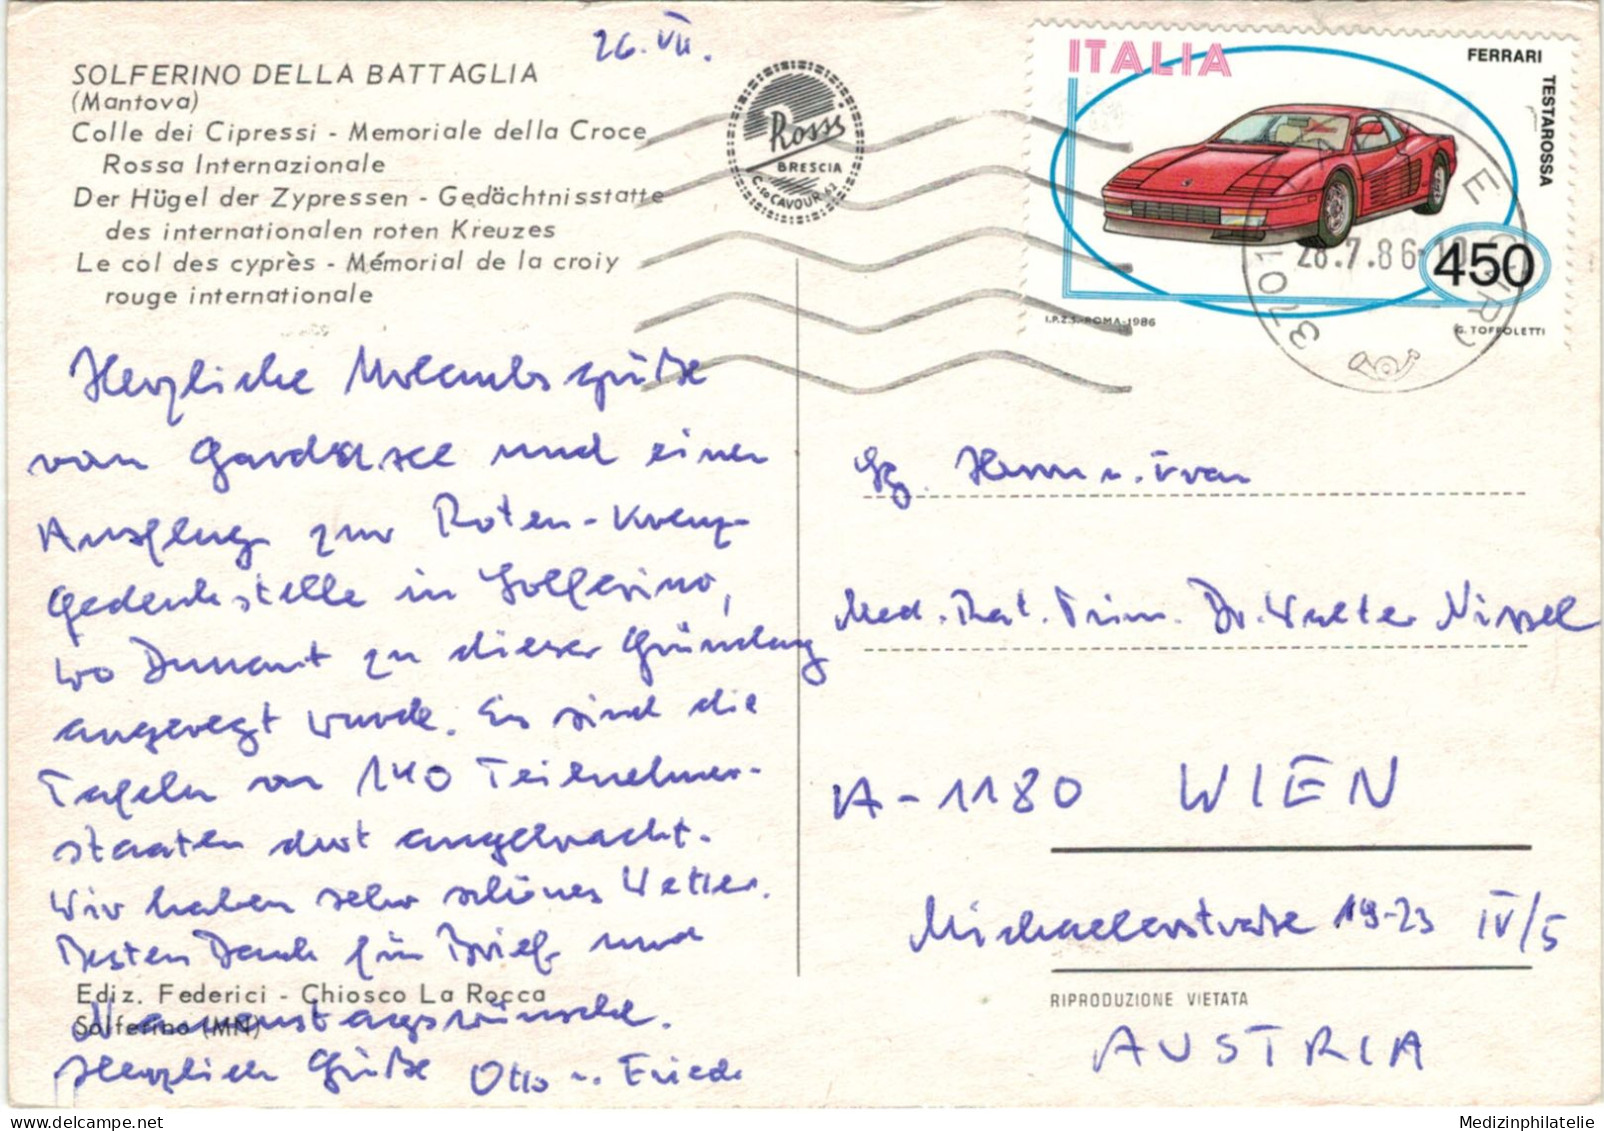 26. VII.
SOLFERINO DELLA BATTAGLIA
(Mantova)
Colle dei Cipressi - Memoriale della Croce
Rossa Internazionale
Der Hügel der Zypressen - Gedächtnisstatte
des internationalen roten Kreuzes
Le col des cyprès - Mémorial de la croiy
rouge internationale
Rossi
BRESCIA
C.to CAVOUR 62
ITALIA
FERRARI
TESTAROSSA
450
I.P.Z.S.-ROMA-1986
G. TOFFOLETTI
28.7.86-10
3701
Herzliche Urlaubsgrüße
vom Gardasee und einen
Ausflug zur Roten-Kreuz-
Gedenkstelle in Solferino,
wo Dunant zu dieser Gründung
angeregt wurde. Es sind die
Tafeln von 140 Teilnehmer-
staaten dort angebracht.
Wir haben sehr schönes Wetter.
Besten Dank für Brief und
Namenstagswünsche.
Herzlich Grüße Otto u. Friede
Ediz. Federici - Chiosco La Rocca
Solferino (MN)
Sg. Herrn u. Frau
Med. Rat. Prim. Dr. Walter Nissel
A-1180 WIEN
Michaelerstraße 19-23 IV/5
RIPRODUZIONE VIETATA
AUSTRIA
Medizinphilatelie